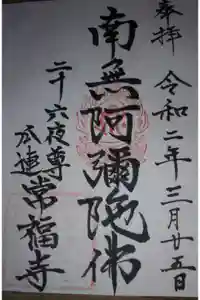 奉拝
令和二年三月廿五日
南無阿彌陀佛
二十六夜尊
瓜連 常福寺